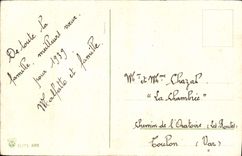 De toute la
famille meilleurs vœux
pour 1939
Mathilde et famille
Mr et Mme Chazal
"La Chambrée"
Chemin de l'Oratoire (Les Routes)
Toulon (Var)